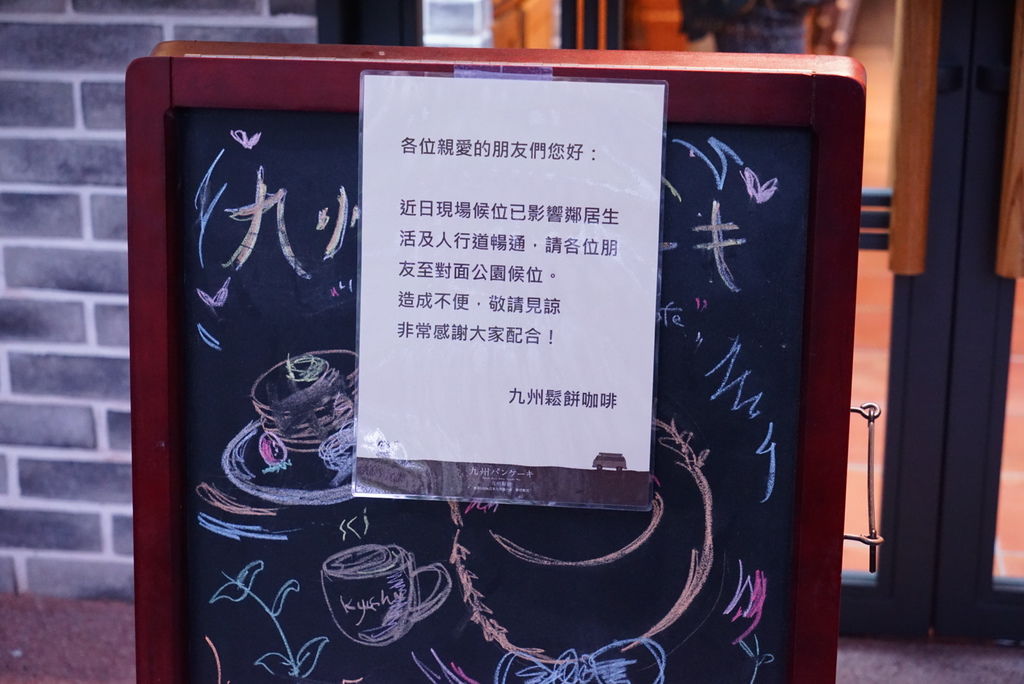 各位親愛的朋友們您好：
近日現場候位已影響鄰居生
活及人行道暢通，請各位朋
友至對面公園候位。
造成不便，敬請見諒
非常感謝大家配合！
九州鬆餅咖啡
九州パンケーキ
九州
キ
Kyushu